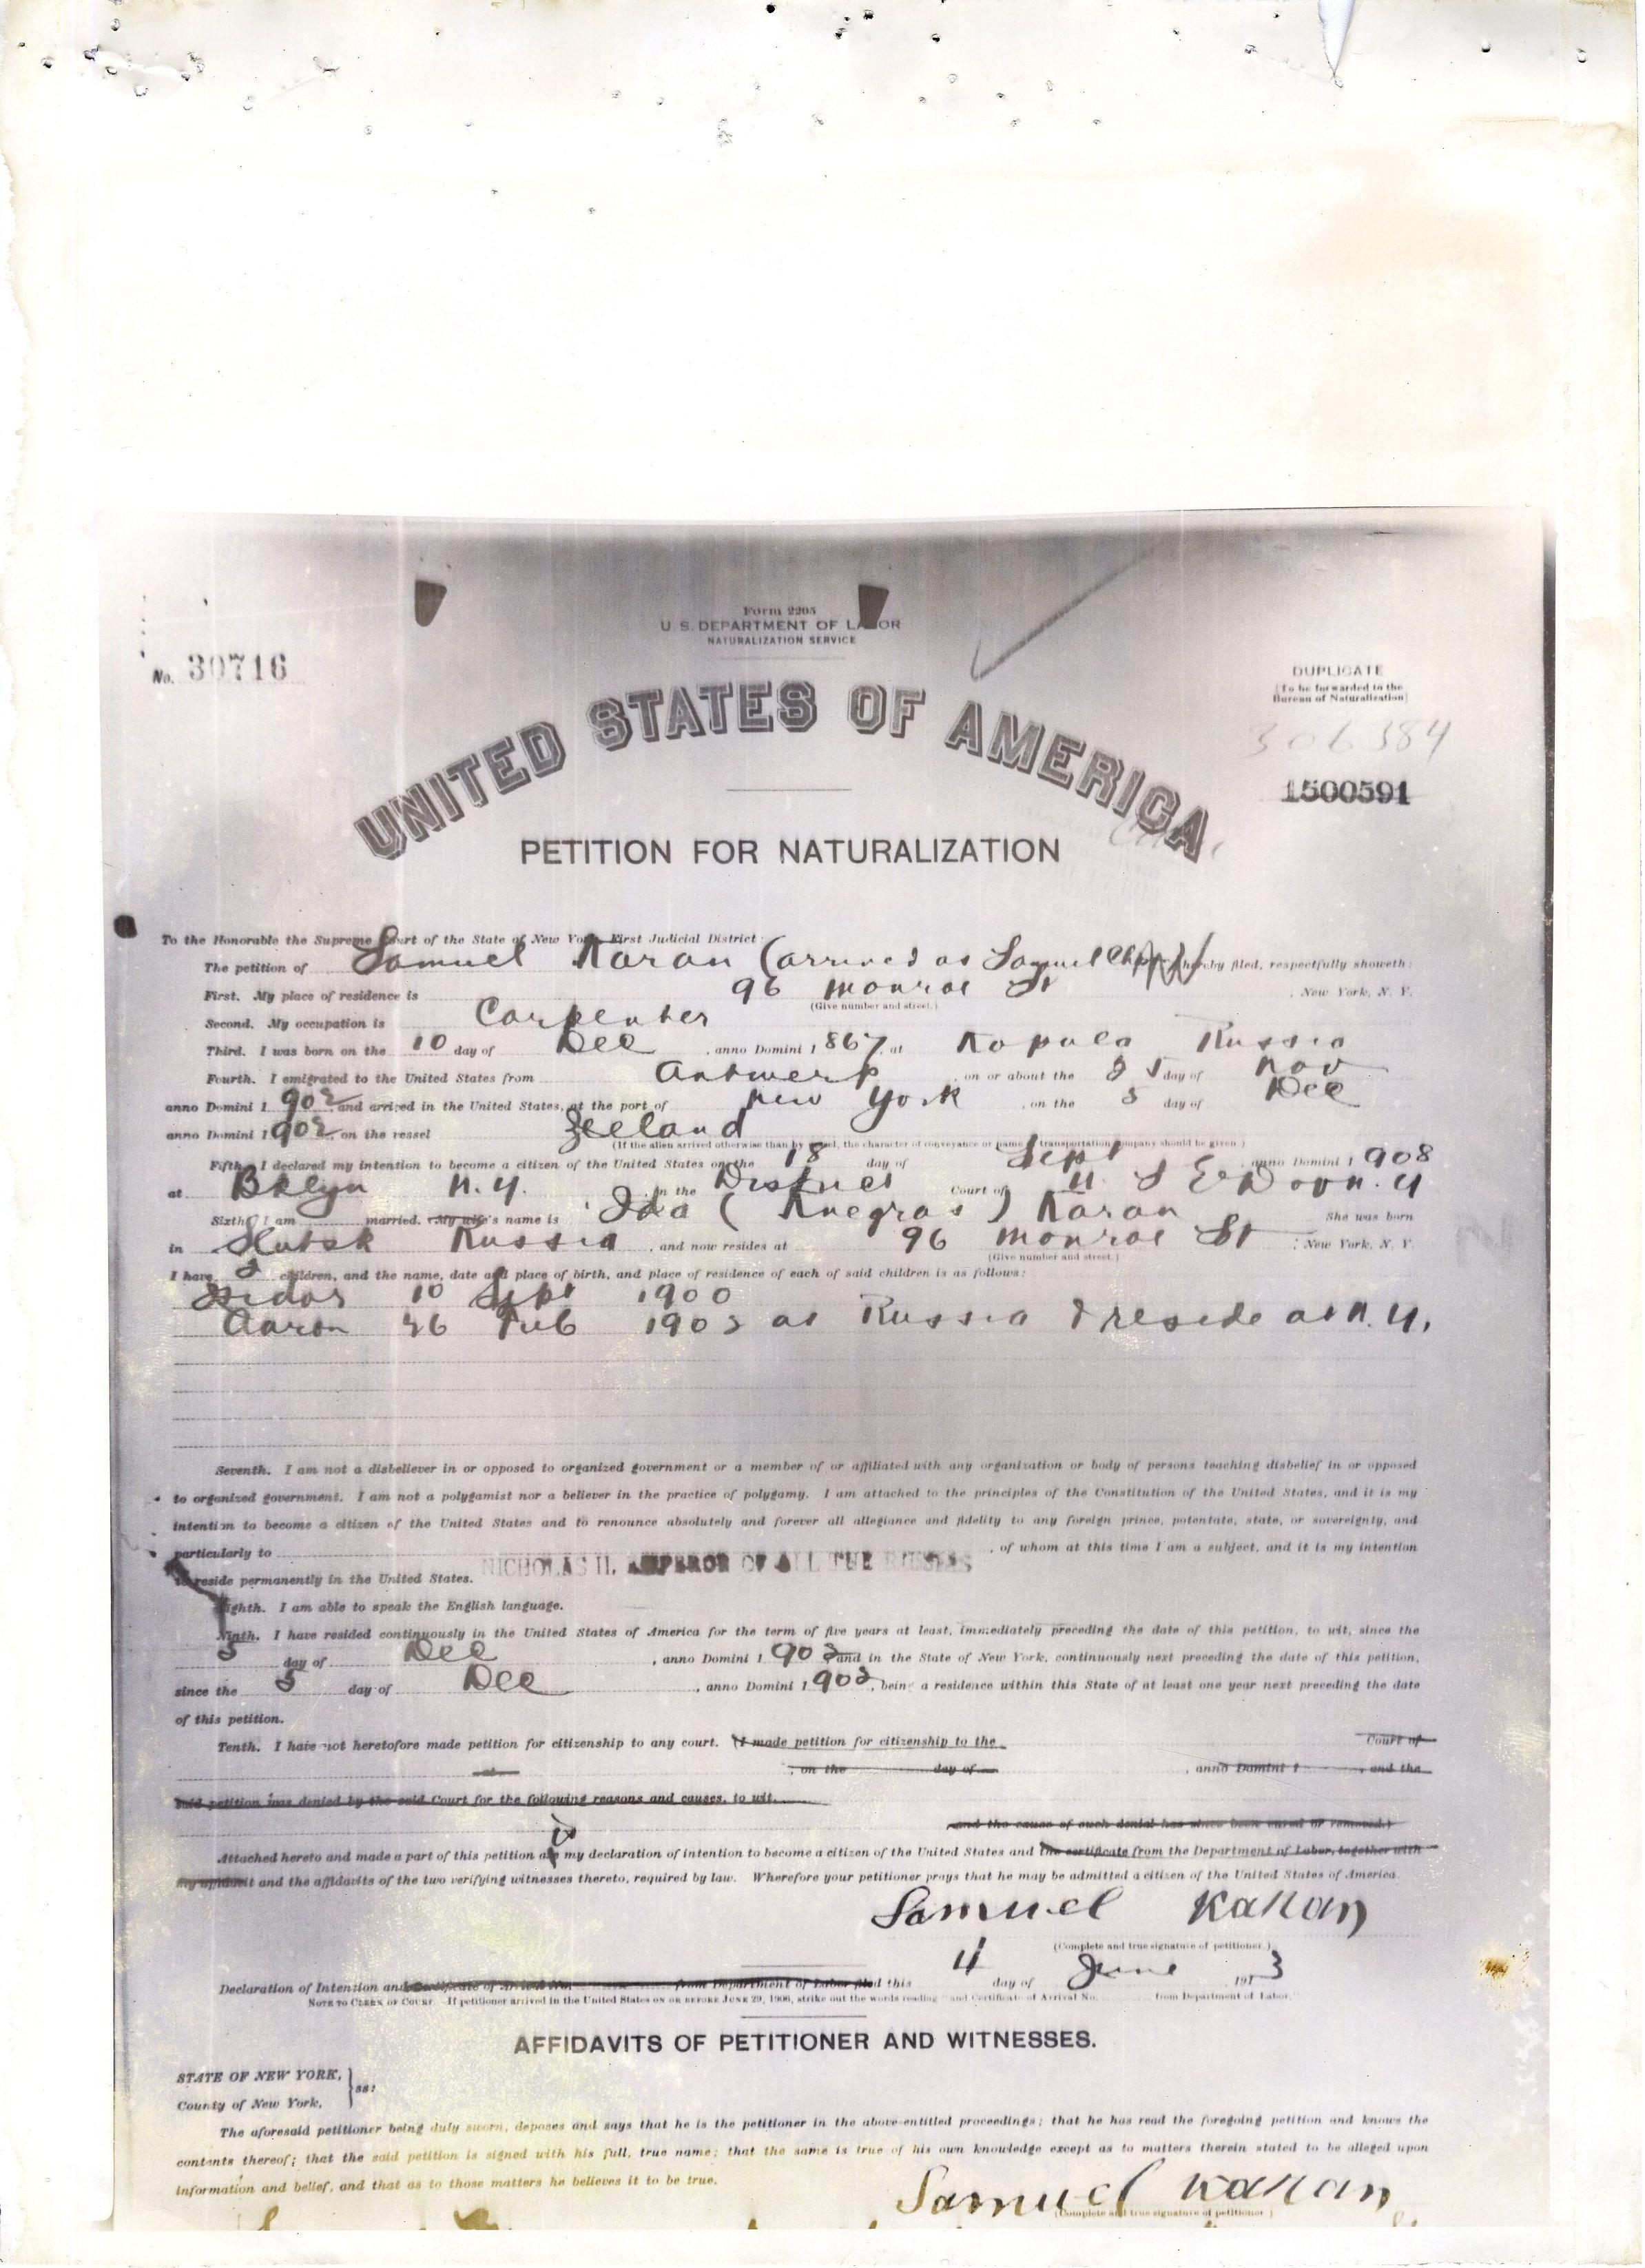 Form 2205
U. S. DEPARTMENT OF LABOR
NATURALIZATION SERVICE
No. 30716
DUPLICATE
(To be forwarded to the
Bureau of Naturalization)
306384
1500591
UNITED STATES OF AMERICA
PETITION FOR NATURALIZATION
To the Honorable the Supreme Court of the State of New York, First Judicial District:
The petition of Samuel Karan (arrived as Samuel hereby filed, respectfully showeth:
First. My place of residence is 96 Monroe St , New York, N. Y.
(Give number and street.)
Second. My occupation is Carpenter
Third. I was born on the 10 day of Dec , anno Domini 1 867, at Russia
Fourth. I emigrated to the United States from Antwerp , on or about the 25 day of Nov
anno Domini 1 902 and arrived in the United States, at the port of New York , on the 5 day of Dec
anno Domini 1 902, on the vessel Zeeland
(If the alien arrived otherwise than by vessel, the character of conveyance or name of transportation company should be given.)
Fifth. I declared my intention to become a citizen of the United States on the 18 day of Sept , anno Domini 1 908
at Bklyn N. Y. , in the District Court of U S E D of N. Y
Sixth. I am married. My wife's name is Ida ( ) Karan She was born
in Slutsk Russia , and now resides at 96 Monroe St , New York, N. Y.
(Give number and street.)
I have 2 children, and the name, date and place of birth, and place of residence of each of said children is as follows:
Isidor 10 Sept 1900
Aaron 26 Feb 1902 at Russia & reside at N. Y.
Seventh. I am not a disbeliever in or opposed to organized government or a member of or affiliated with any organization or body of persons teaching disbelief in or opposed
to organized government. I am not a polygamist nor a believer in the practice of polygamy. I am attached to the principles of the Constitution of the United States, and it is my
intention to become a citizen of the United States and to renounce absolutely and forever all allegiance and fidelity to any foreign prince, potentate, state, or sovereignty, and
particularly to NICHOLAS II, EMPEROR OF ALL THE RUSSIAS , of whom at this time I am a subject, and it is my intention
to reside permanently in the United States.
Eighth. I am able to speak the English language.
Ninth. I have resided continuously in the United States of America for the term of five years at least, immediately preceding the date of this petition, to wit, since the
5 day of Dec , anno Domini 1 902 and in the State of New York, continuously next preceding the date of this petition,
since the 5 day of Dec , anno Domini 1 902, being a residence within this State of at least one year next preceding the date
of this petition.
Tenth. I have not heretofore made petition for citizenship to any court. (I made petition for citizenship to the Court of
at , on the day of , anno Domini 1 , and the
said petition was denied by the said Court for the following reasons and causes, to wit,
and the cause of such denial has since been cured or removed.)
Attached hereto and made a part of this petition is my declaration of intention to become a citizen of the United States and the certificate from the Department of Labor, together with
my affidavit and the affidavits of the two verifying witnesses thereto, required by law. Wherefore your petitioner prays that he may be admitted a citizen of the United States of America.
Samuel Karan
(Complete and true signature of petitioner.)
Declaration of Intention and Certificate of Arrival No. from Department of Labor filed this 4 day of June 191 3
NOTE TO CLERK OF COURT. If petitioner arrived in the United States ON OR BEFORE JUNE 29, 1906, strike out the words reading "and Certificate of Arrival No. from Department of Labor."
AFFIDAVITS OF PETITIONER AND WITNESSES.
STATE OF NEW YORK,
County of New York, } ss:
The aforesaid petitioner being duly sworn, deposes and says that he is the petitioner in the above-entitled proceedings; that he has read the foregoing petition and knows the
contents thereof; that the said petition is signed with his full, true name; that the same is true of his own knowledge except as to matters therein stated to be alleged upon
information and belief, and that as to those matters he believes it to be true.
Samuel Karan
(Complete and true signature of petitioner.)